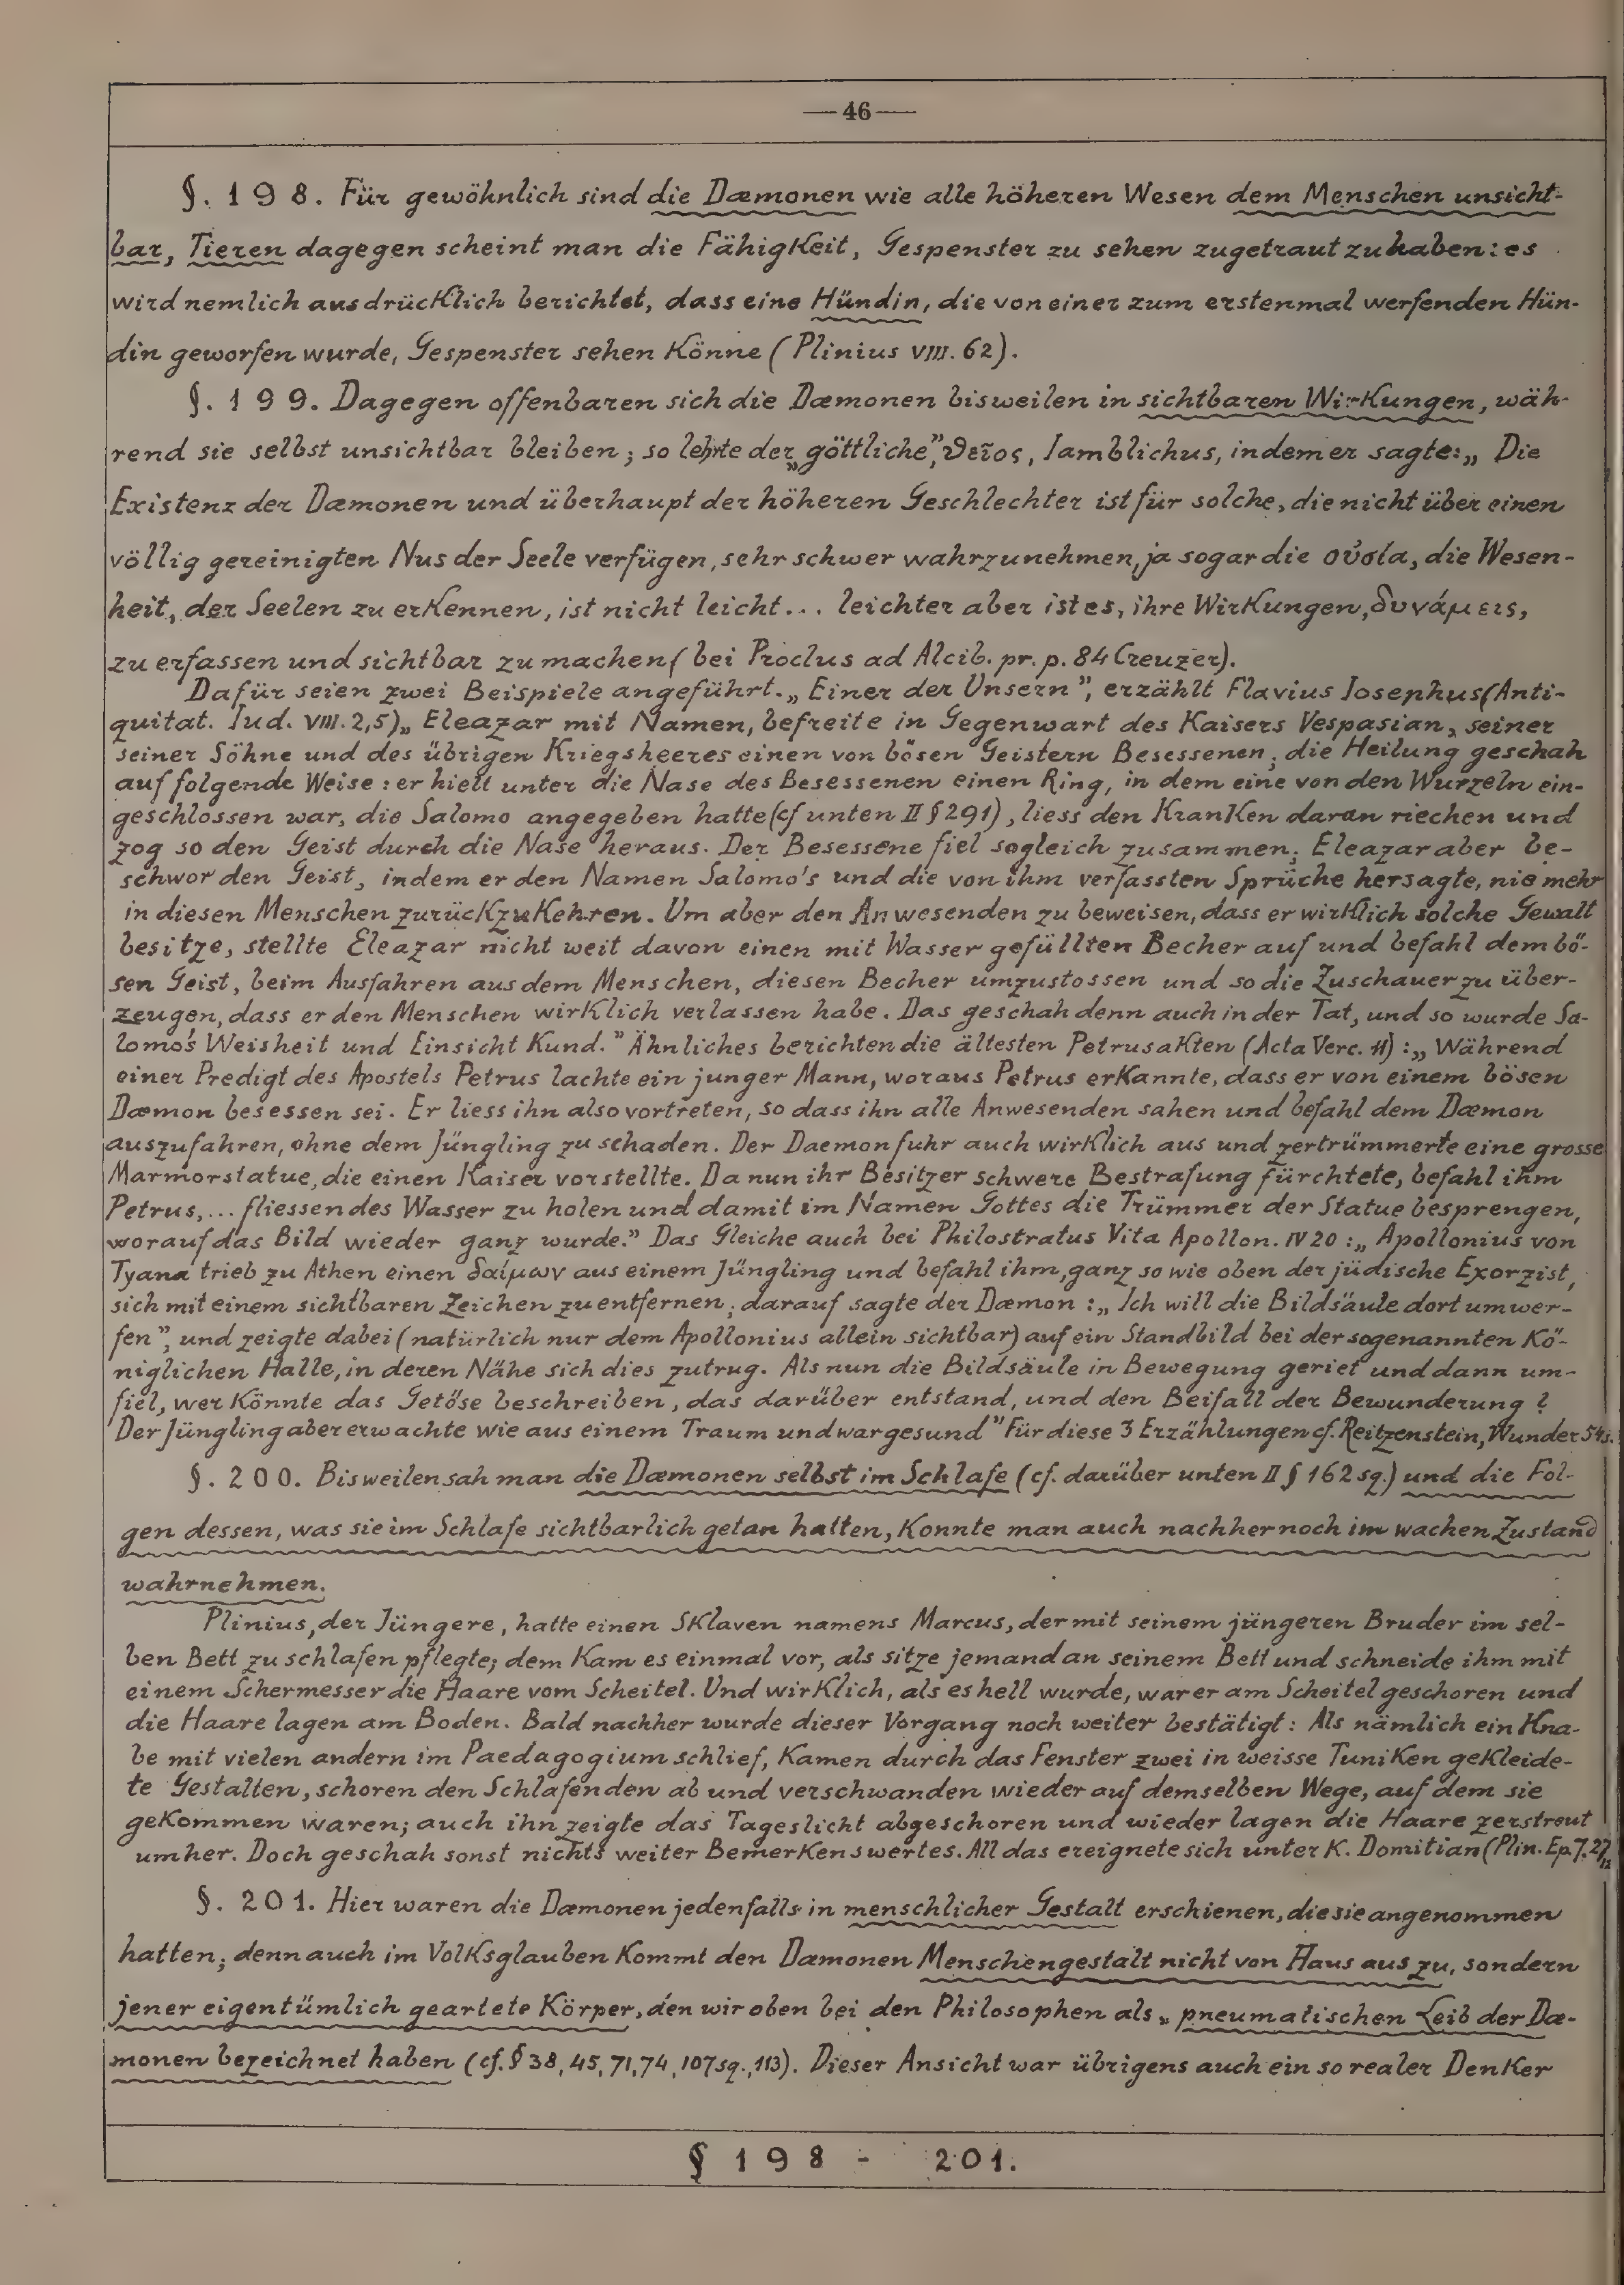 —46—
§. 198. Für gewöhnlich sind die Dæmonen wie alle höheren Wesen dem Menschen unsicht-
bar, Tieren dagegen scheint man die Fähigkeit, Gespenster zu sehen zugetraut zu haben: es
wird nemlich ausdrücklich berichtet, dass eine Hündin, die von einer zum erstenmal werfenden Hün-
din geworfen wurde, Gespenster sehen könne (Plinius VIII. 62).
§. 199. Dagegen offenbaren sich die Dæmonen bisweilen in sichtbaren Wirkungen, wäh-
rend sie selbst unsichtbar bleiben; so lehrte der „göttliche”, ϑεῖος, Iamblichus, indem er sagte: „Die
Existenz der Dæmonen und überhaupt der höheren Geschlechter ist für solche, die nicht über einen
völlig gereinigten Nus der Seele verfügen, sehr schwer wahrzunehmen, ja sogar die οὐσία, die Wesen-
heit, der Seelen zu erkennen, ist nicht leicht... leichter aber ist es, ihre Wirkungen, δυνάμεις,
zu erfassen und sichtbar zu machen (bei Proclus ad Alcib. pr. p. 84 Creuzer).
Dafür seien zwei Beispiele angeführt. „Einer der Unsern”, erzählt Flavius Iosephus (Anti-
quitat. Iud. VIII. 2,5) „Eleazar mit Namen, befreite in Gegenwart des Kaisers Vespasian, seiner
seiner Söhne und des übrigen Kriegsheeres einen von bösen Geistern Besessenen; die Heilung geschah
auf folgende Weise: er hielt unter die Nase des Besessenen einen Ring, in dem eine von den Wurzeln ein-
geschlossen war, die Salomo angegeben hatte (cf unten II § 291), liess den Kranken daran riechen und
zog so den Geist durch die Nase heraus. Der Besessene fiel sogleich zusammen; Eleazar aber be-
schwor den Geist, indem er den Namen Salomo's und die von ihm verfassten Sprüche hersagte, nie mehr
in diesen Menschen zurückzukehren. Um aber den Anwesenden zu beweisen, dass er wirklich solche Gewalt
besitze, stellte Eleazar nicht weit davon einen mit Wasser gefüllten Becher auf und befahl dem bö-
sen Geist, beim Ausfahren aus dem Menschen, diesen Becher umzustossen und so die Zuschauer zu über-
zeugen, dass er den Menschen wirklich verlassen habe. Das geschah denn auch in der Tat, und so wurde Sa-
lomo's Weisheit und Einsicht kund.” Ähnliches berichten die ältesten Petrusakten (Acta Verc. 11): „Während
einer Predigt des Apostels Petrus lachte ein junger Mann, woraus Petrus erkannte, dass er von einem bösen
Dæmon besessen sei. Er liess ihn also vortreten, so dass ihn alle Anwesenden sahen und befahl dem Dæmon
auszufahren, ohne dem Jüngling zu schaden. Der Daemon fuhr auch wirklich aus und zertrümmerte eine grosse
Marmorstatue, die einen Kaiser vorstellte. Da nun ihr Besitzer schwere Bestrafung fürchtete, befahl ihm
Petrus,... fliessendes Wasser zu holen und damit im Namen Gottes die Trümmer der Statue besprengen,
worauf das Bild wieder ganz wurde.” Das Gleiche auch bei Philostratus Vita Apollon. IV 20: „Apollonius von
Tyana trieb zu Athen einen δαίμων aus einem Jüngling und befahl ihm, ganz so wie oben der jüdische Exorzist,
sich mit einem sichtbaren Zeichen zu entfernen; darauf sagte der Dæmon: „Ich will die Bildsäule dort umwer-
fen”, und zeigte dabei (natürlich nur dem Apollonius allein sichtbar) auf ein Standbild bei der sogenannten Kö-
niglichen Halle, in deren Nähe sich dies zutrug. Als nun die Bildsäule in Bewegung geriet und dann um-
fiel, wer könnte das Getöse beschreiben, das darüber entstand, und den Beifall der Bewunderung?
Der Jüngling aber erwachte wie aus einem Traum und war gesund” Für diese 3 Erzählungen cf. Reitzenstein, Wunder 54s.
§. 200. Bisweilen sah man die Dæmonen selbst im Schlafe (cf. darüber unten II § 162 sq.) und die Fol-
gen dessen, was sie im Schlafe sichtbarlich getan hatten, konnte man auch nachher noch im wachen Zustand
wahrnehmen.
Plinius, der Jüngere, hatte einen Sklaven namens Marcus, der mit seinem jüngeren Bruder im sel-
ben Bett zu schlafen pflegte; dem kam es einmal vor, als sitze jemand an seinem Bett und schneide ihm mit
einem Schermesser die Haare vom Scheitel. Und wirklich, als es hell wurde, war er am Scheitel geschoren und
die Haare lagen am Boden. Bald nachher wurde dieser Vorgang noch weiter bestätigt: Als nämlich ein Kna-
be mit vielen andern im Paedagogium schlief, kamen durch das Fenster zwei in weisse Tuniken gekleide-
te Gestalten, schoren den Schlafenden ab und verschwanden wieder auf demselben Wege, auf dem sie
gekommen waren; auch ihn zeigte das Tageslicht abgeschoren und wieder lagen die Haare zerstreut
umher. Doch geschah sonst nichts weiter Bemerkenswertes. All das ereignete sich unter K. Domitian (Plin. Ep. 7. 27, 12
§. 201. Hier waren die Dæmonen jedenfalls in menschlicher Gestalt erschienen, die sie angenommen
hatten; denn auch im Volksglauben kommt den Dæmonen Menschengestalt nicht von Haus aus zu, sondern
jener eigentümlich geartete Körper, den wir oben bei den Philosophen als „pneumatischen Leib der Dæ-
monen bezeichnet haben (cf. § 38, 45, 71, 74, 107 sq., 113). Dieser Ansicht war übrigens auch ein so realer Denker
§ 198 - 201.